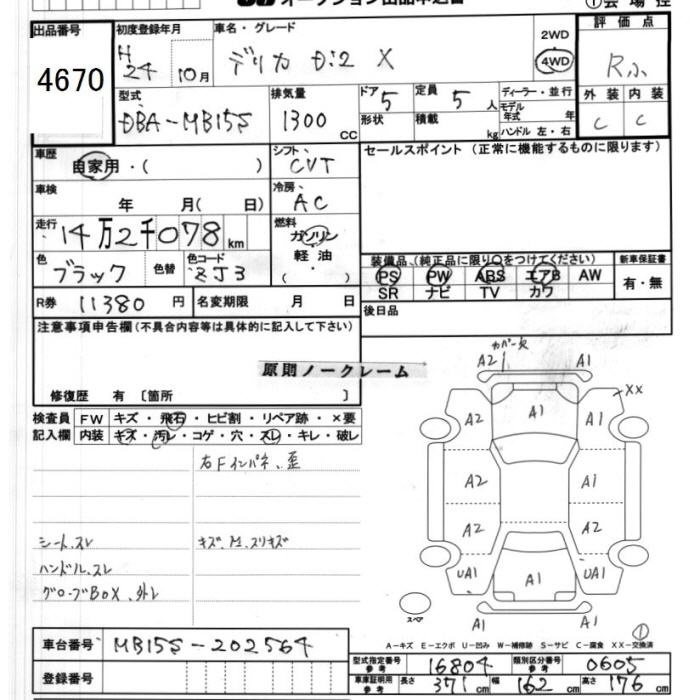 オークション出品申込書
①会場控
出品番号
4670
初度登録年月
H 24 10月
車名・グレード
デリカ D:2 X
2WD
4WD
評価点
R
外装 内装
C C
型式
DBA-MB15S
排気量
1300 CC
ドア 5
形状
定員 5 人
積載 kg
ディーラー・並行
モデル年式 年
ハンドル 左・右
車歴
自家用・( )
シフト
CVT
セールスポイント (正常に機能するものに限ります)
車検
年 月( 日)
冷房
AC
走行
14万2千078 km
燃料
ガソリン
軽油
( )
色
ブラック
色替
色コード
ZJ3
装備品 (純正品に限り○をつけてください)
PS PW ABS エアB AW
SR ナビ TV カワ
新車保証書
有・無
R券 11380 円
名変期限 月 日
後日品
注意事項申告欄(不具合内容等は具体的に記入して下さい)
原則ノークレーム
修復歴 有 〔箇所 〕
検査員
記入欄
FW キズ・飛石・ヒビ割・リペア跡・×要
内装 キズ・汚レ・コゲ・穴・スレ・キレ・破レ
右Fインパネ、歪
シート、スレ
キズ、凹、スリキズ
ハンドル、スレ
グローブBOX、外レ
カバー欠
A2 A1
XX
A2 A1 A1
A2 A1
A2 A1
UA1 A1 UA1
A1 A1
スペア
①
A-キズ E-エクボ U-凹み W-補修跡 S-サビ C-腐食 XX-交換済
車台番号 MB15S-202564
登録番号
型式指定番号 参考 16804
類別区分番号 参考 0605
車庫証明用 参考 長さ 371cm 幅 162cm 高さ 176cm